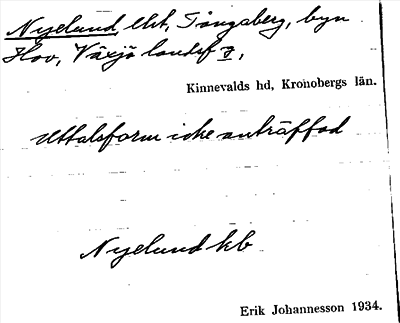 Nyelund, lht, Tångaberg, byn
Hov, Växjö landsf 3,
Kinnevalds hd, Kronobergs län.
Uttalsform icke anträffad
Nyelund kb
Erik Johannesson 1934.